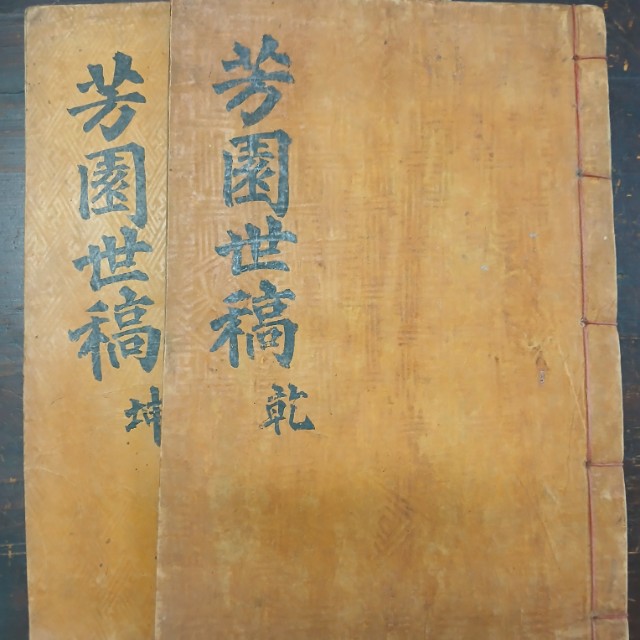 芳園世稿
乾
芳園世稿
坤